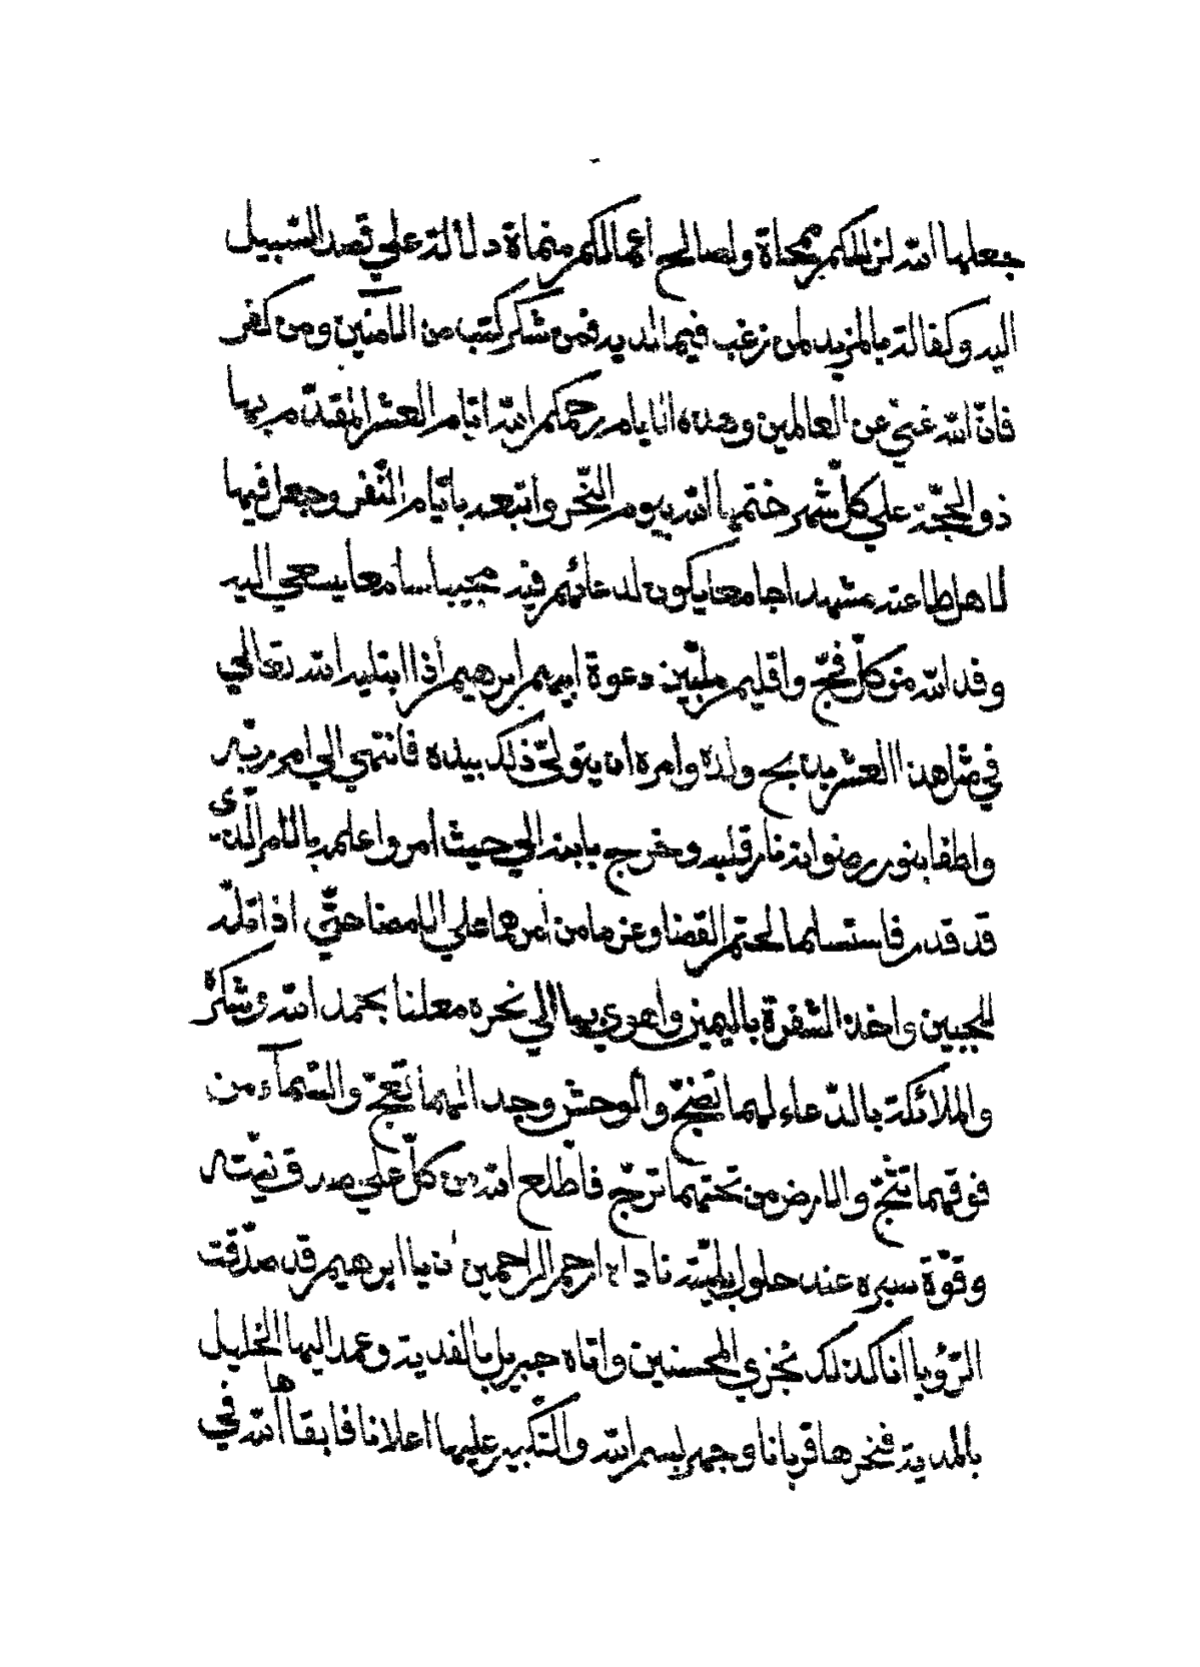 جعلها الله لزللكم ممحاة ولصالح اعمالكم منماة دلالة علي قصد السبيل
اليه وكفالة بالمزيد لمن رغب فيما لديه فمن شكر كتب من الآمنين ومن كفر
فانّ الله غني عن العالمين وهذه الايام رحمكم الله ايّام العشر المقدّم بها
ذو الحجّة علي كلّ شهر ختمها الله بيوم النّحر واتبعه بايّام النّفر وجعل فيها
لاهل طاعته مشهدا جامعا يكون لدعائهم فيه مجيبا سامعا يسعي اليه
وفد الله من كلّ فجّ واقليم ملبّين دعوة ابيهم ابرهيم اذا ابتليه الله تعالي
في مثل هذا العشر بذبح ولده وامره ان يتولّي ذلك بيده فانتهي الي امر ربّه
واطفا بنور رضوانه نار قلبه وخرج بابنه الي حيث امر واعلمه بالامر الّذي
قد قدر فاستسلما لحتم القضا وعزما من امرهما علي الامضا حتّي اذا تلّه
للجبين واخذ الشفرة باليمين واهوي بها الي نحره معلنا بحمد الله وشكره
والملائكة بالدّعاء لهما تضجّ والوحش وجدا لهما تعجّ والسّمآء من
فوقهما تثجّ والارض من تحتهما ترجّ فاطّلع الله من كلّ علي صدق نيّته
وقوّة صبره عند حلول بليّته ناداه ارحم الراحمين ان يا ابرهيم قد صدّقت
الرّؤيا انا كذلك نجزي المحسنين واتاه جبريل بالفدية وعمد اليها الخليل
بالمدية فنحرها قربانا وجهر بسم الله والتّكبير عليها اعلانا فابقاها الله في